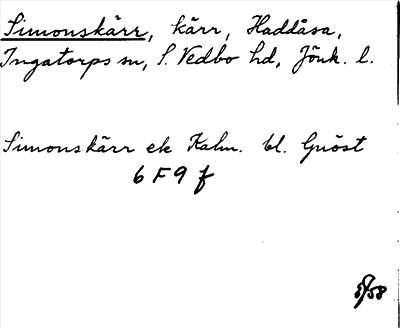 Simonskärr, kärr, Haddåsa,
Ingatorps sn, S. Vedbo hd, Jönk. l.
Simonskärr ek Kalm. bl. Gnöst
6 F 9 f
58